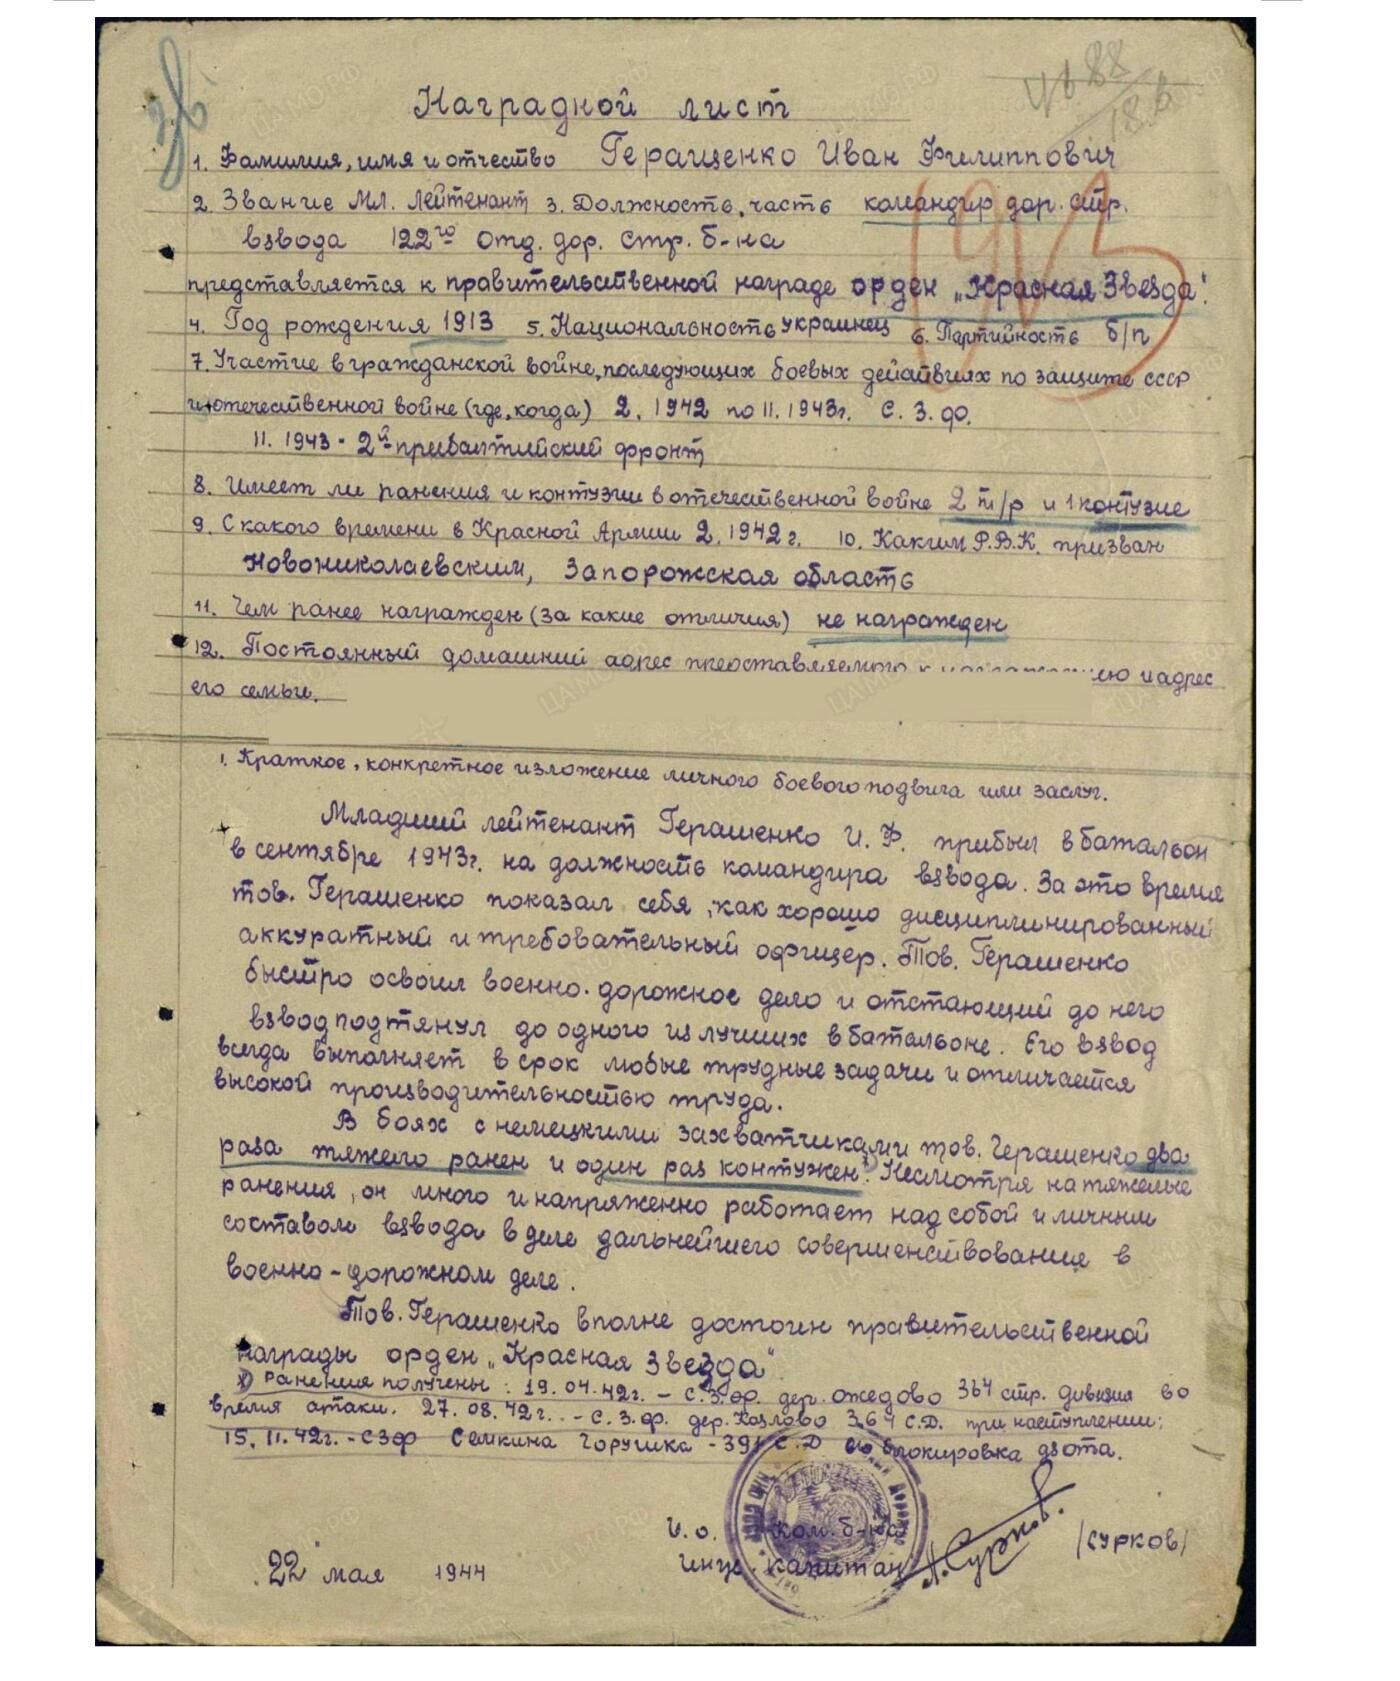 Наградной лист
1. Фамилия, имя и отчество Геращенко Иван Филиппович
2. Звание Мл. лейтенант 3. Должность, часть командир дор. стр.
взвода 122го отд. дор. стр. б-на
представляется к правительственной награде орден „Красная Звезда".
4. Год рождения 1913 5. Национальность украинец 6. Партийность б/п
7. Участие в гражданской войне, последующих боевых действиях по защите СССР
и отечественной войне (где, когда) 2. 1942 по 11. 1943г. С. З. ф.
11. 1943 - 2й прибалтийский фронт
8. Имеет ли ранения и контузии в отечественной войне 2 т/р и 1 контузие
9. С какого времени в Красной Армии 2. 1942 г. 10. Каким Р.В.К. призван
Новониколаевским, Запорожская область
11. Чем ранее награжден (за какие отличия) не награжден
12. Постоянный домашний адрес представляемого к и адрес
его семьи.
1. Краткое, конкретное изложение личного боевого подвига или заслуг.
Младший лейтенант Геращенко И. Ф. прибыл в батальон
в сентябре 1943г. на должность командира взвода. За это время
тов. Геращенко показал себя, как хорошо дисциплинированный
аккуратный и требовательный офицер. Тов. Геращенко
быстро освоил военно-дорожное дело и отстающий до него
взвод подтянул до одного из лучших в батальоне. Его взвод
всегда выполняет в срок любые трудные задачи и отличается
высокой производительностью труда.
В боях с немецкими захватчиками тов. Геращенко два
раза тяжело ранен и один раз контужен. Несмотря на тяжелые
ранения, он много и напряженно работает над собой и личным
составом взвода в деле дальнейшего совершенствования в
военно-дорожном деле.
Тов. Геращенко вполне достоин правительственной
награды орден „Красная Звезда"
х) ранения получены: 19.04.42г. - С.З.фр. дер. Ожедово 364 стр. дивизия во
время атаки. 27.08.42г. - С.З.ф. дер. Козлово 364 С.Д. при наступлении;
15.11.42г. - СЗФ Семкина Горушка - 391 С.Д блокировка дзота.
И. о. Ком. б-на
Инж. капитан А. Сурков. /Сурков/
22 мая 1944